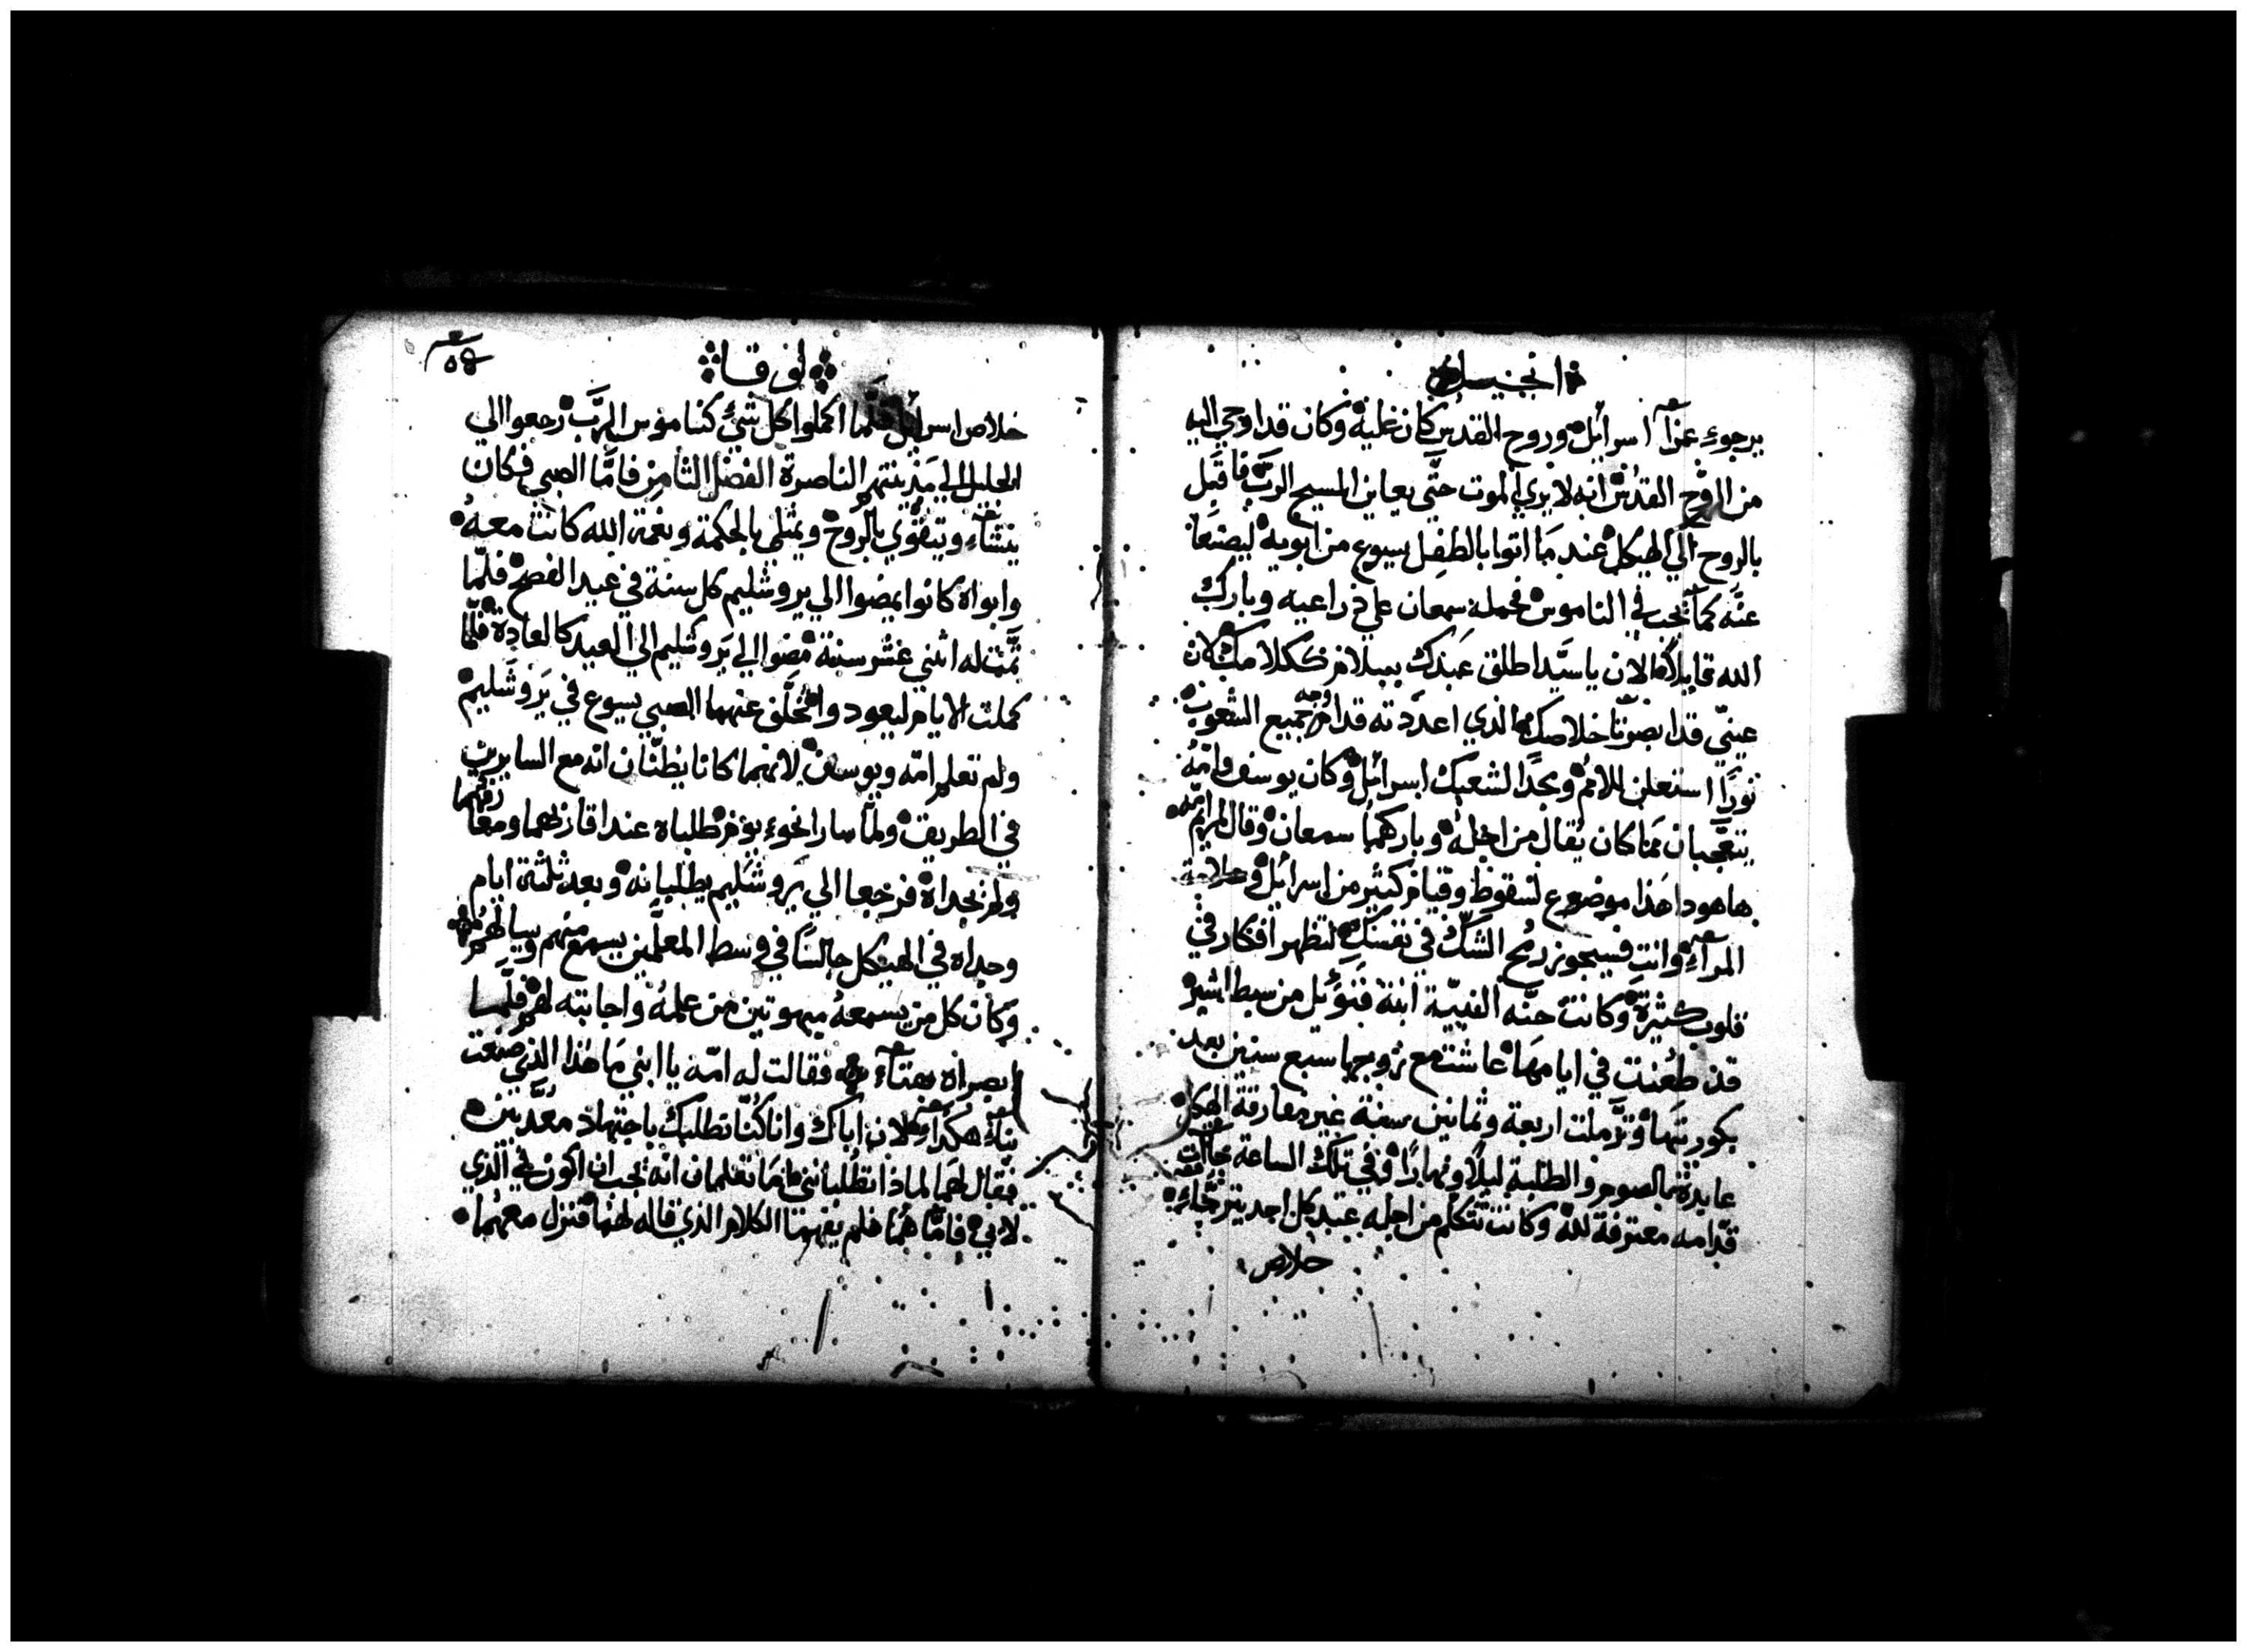 انجيل
يرجوء عزآء اسرائيل وروح القدس كان عليه وكان قد اوحي اليه
من الروح القدس انه لا يري الموت حتّي يعاين المسيح الربّ فاقبل
بالروح الي الهيكل عند ما اتوا بالطفل يسوع من ابويه ليصنعا
عنه كما يجب في الناموس فحمله سمعان علي ذراعيه وبارك
الله قايلاً الان يا سيّد اطلق عبدك بسلام ككلامك لان
عينيّ قد ابصرتا خلاصك الذي اعددته قدام وجه جميع الشعوب
نورًا استعلن للامم ومجدًا لشعبك اسرائيل وكان يوسف وامّه
يتعجّبان ممّا كان يُقال من اجله وباركهما سمعان وقال لمريم امّه
ها هوذا هذا موضوع لسقوط وقيام كثير من اسرائيل وعلامة
المرآء وانتِ فسيجوز رمح الشكّ في نفسكِ لتظهر افكار في
قلوب كثيرة وكانت حنّه النبيّة ابنة فنوئيل من سبط اشير
قد طعنت في ايامها عاشت مع زوجها سبع سنين بعد
بكوريتها وترّملت اربعة وثمانين سنة غير مفارقة الهيكل
عابدة بالصوم والطلبة ليلاً ونهارًا وفي تلك الساعة جآات
قدّامه معترفة لله وكانت تتكلم من اجله عند كل احد يترجّاء
خلاص
لوقا
خلاص اسرائيل فلّما اكملوا كل شيء كناموس الربّ رجعوا الي
الجليل الي مدينتهم الناصرة الفصل الثامن فامّا الصبي فكان
ينشآء ويتقوّي بالروح ويمتلي بالحكمة ونعمة الله كانت معه
وابواه كانوا يمضوا الي يروشليم كل سنة في عيد الفصح فلمّا
تمّت له اثني عشر سنة مضوا الي يروشليم الي العيد كالعادة فلمّا
كملت الايام ليعود وا تخلّف عنهما الصبي يسوع في يروشليم
ولم تعلم امّه ويوسف لانهما كانا يظنّان انه مع السايرين
في الطريق ولمّا سارا نحوء يوم طلباه عند اقاربهما ومعارفهما
ولم يجداه فرجعا الي يروشليم يطلبانه وبعد ثلثة ايام
وجداه في الهيكل جالسًا في وسط المعلّمين يسمع منهم ويسالهم
وكان كل من يسمعه مبهوتين من علمه واجابته لهم فلّما
ابصراه بهتآء فقالت له امّه يا ابني ما هذا الذي صنعت
بناء هكذا لان اباك وانا كُنّا نطلبك باجتهاد معذّبين
فقال لهما لماذا تطلبانني اما تعلمان انه يجب ان اكون في الذي
لابي فامّا هما فلم يفهما الكلام الذي قاله لهما فنزل معهما